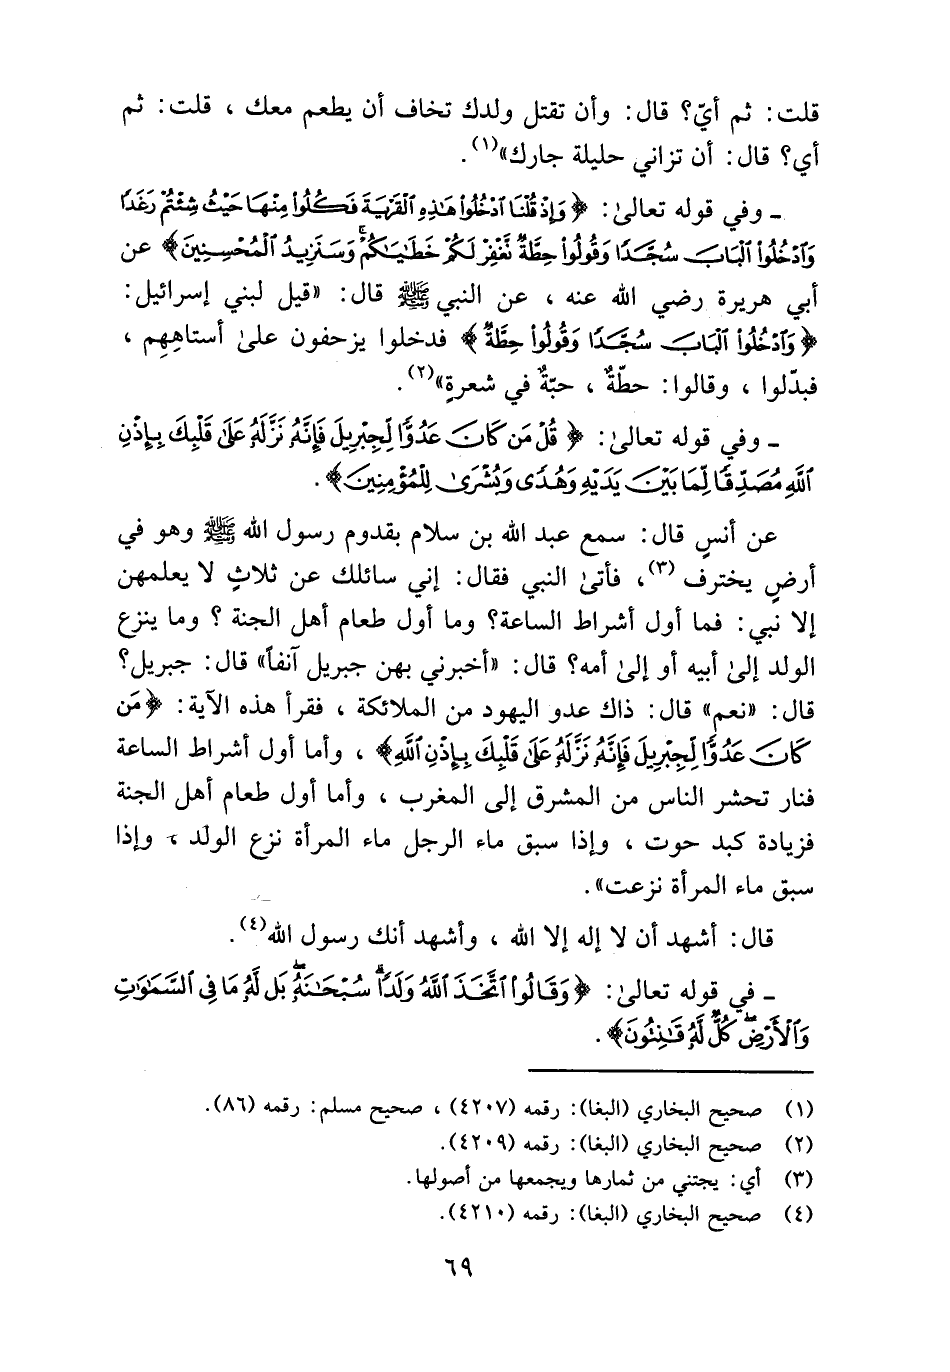 قلت: ثم أيّ؟ قال: وأن تقتل ولدك تخاف أن يطعم معك ، قلت: ثم
أي؟ قال: أن تزاني حليلة جارك»(١).
ـ وفي قوله تعالىٰ: ﴿وَإِذْ قُلْنَا ٱدْخُلُوا۟ هَٰذِهِ ٱلْقَرْيَةَ فَكُلُوا۟ مِنْهَا حَيْثُ شِئْتُمْ رَغَدًا
وَٱدْخُلُوا۟ ٱلْبَابَ سُجَّدًا وَقُولُوا۟ حِطَّةٌ نَّغْفِرْ لَكُمْ خَطَٰيَٰكُمْ ۚ وَسَنَزِيدُ ٱلْمُحْسِنِينَ﴾ عن
أبي هريرة رضي الله عنه ، عن النبي ﷺ قال: «قيل لبني إسرائيل:
﴿وَٱدْخُلُوا۟ ٱلْبَابَ سُجَّدًا وَقُولُوا۟ حِطَّةٌ﴾ فدخلوا يزحفون علىٰ أستاهِهِم ،
فبدّلوا ، وقالوا: حطّةٌ ، حبّةٌ في شعرةٍ»(٢).
ـ وفي قوله تعالىٰ: ﴿قُلْ مَن كَانَ عَدُوًّا لِّجِبْرِيلَ فَإِنَّهُۥ نَزَّلَهُۥ عَلَىٰ قَلْبِكَ بِإِذْنِ
ٱللَّهِ مُصَدِّقًا لِّمَا بَيْنَ يَدَيْهِ وَهُدًى وَبُشْرَىٰ لِلْمُؤْمِنِينَ﴾.
عن أنسٍ قال: سمع عبد الله بن سلام بقدوم رسول الله ﷺ وهو في
أرضٍ يخترف(٣)، فأتىٰ النبي فقال: إني سائلك عن ثلاثٍ لا يعلمهن
إلا نبي: فما أول أشراط الساعة؟ وما أول طعام أهل الجنة ؟ وما ينزع
الولد إلىٰ أبيه أو إلىٰ أمه؟ قال: «أخبرني بهن جبريل آنفاً» قال: جبريل؟
قال: «نعم» قال: ذاك عدو اليهود من الملائكة ، فقرأ هذه الآية: ﴿مَن
كَانَ عَدُوًّا لِّجِبْرِيلَ فَإِنَّهُۥ نَزَّلَهُۥ عَلَىٰ قَلْبِكَ بِإِذْنِ ٱللَّهِ﴾ ، وأما أول أشراط الساعة
فنار تحشر الناس من المشرق إلى المغرب ، وأما أول طعام أهل الجنة
فزيادة كبد حوت ، وإذا سبق ماء الرجل ماء المرأة نزع الولد ، وإذا
سبق ماء المرأة نزعت».
قال: أشهد أن لا إله إلا الله ، وأشهد أنك رسول الله(٤).
ـ في قوله تعالىٰ: ﴿وَقَالُوا۟ ٱتَّخَذَ ٱللَّهُ وَلَدًا ۗ سُبْحَٰنَهُۥ ۖ بَل لَّهُۥ مَا فِى ٱلسَّمَٰوَٰتِ
وَٱلْأَرْضِ ۖ كُلٌّ لَّهُۥ قَٰنِتُونَ﴾.
(١) صحيح البخاري (البغا): رقمه (٤٢٠٧) ، صحيح مسلم: رقمه (٨٦).
(٢) صحيح البخاري (البغا): رقمه (٤٢٠٩).
(٣) أي: يجتني من ثمارها ويجمعها من أصولها.
(٤) صحيح البخاري (البغا): رقمه (٤٢١٠).
٦٩